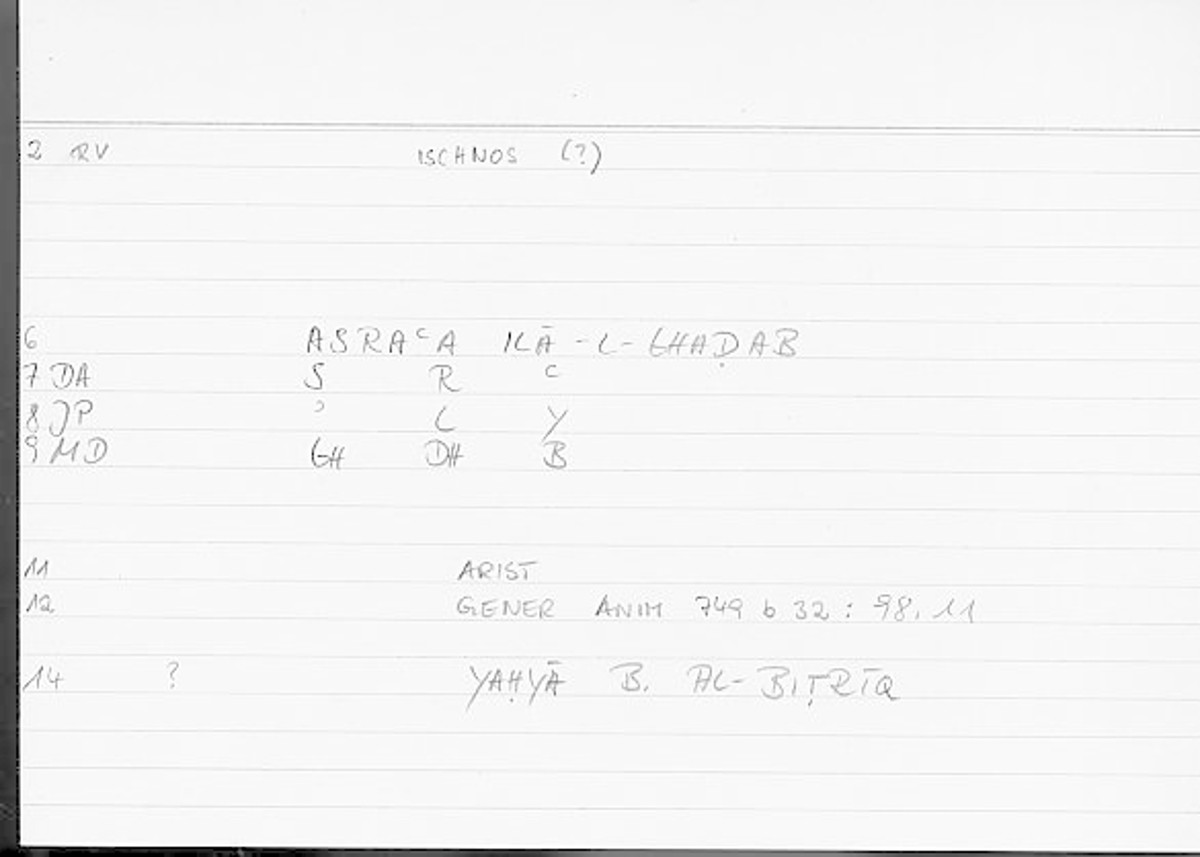 2 RV ISCHNOS (?)
6 ASRAʿA ILĀ-L-GHAḌAB
7 DA S R ʿ
8 JP ʾ L Y
9 MD GH DH B
11 ARIST
12 GENER ANIM 749 b 32 : 98,11
14 ? YAḤYĀ B. AL-BIṬRĪQ